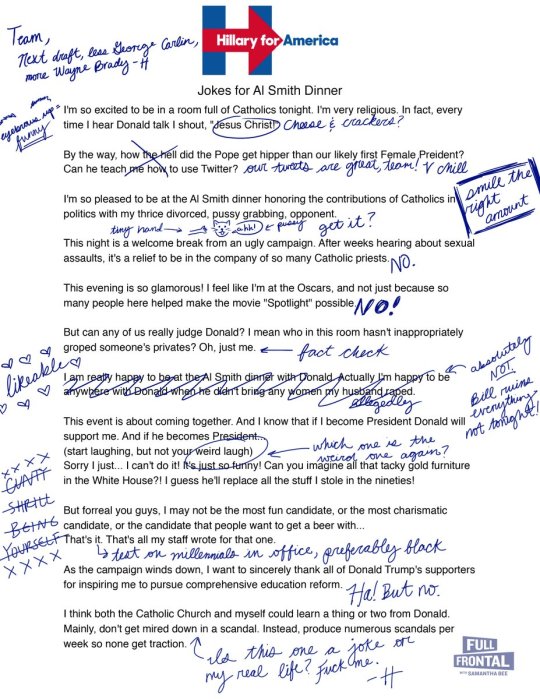 Team,
Next draft, less George Carlin,
more Wayne Brady -H
Hillary for America
Jokes for Al Smith Dinner
eyebrows up
funny
I'm so excited to be in a room full of Catholics tonight. I'm very religious. In fact, every
time I hear Donald talk I shout, "Jesus Christ!" Cheese & crackers?
By the way, how the hell did the Pope get hipper than our likely first Female Prident?
Can he teach me how to use Twitter? our tweets are great, team! V chill
smile the
right
amount
I'm so pleased to be at the Al Smith dinner honoring the contributions of Catholics in
politics with my thrice divorced, pussy grabbing, opponent.
tiny hand → ahh! ← pussy get it?
This night is a welcome break from an ugly campaign. After weeks hearing about sexual
assaults, it's a relief to be in the company of so many Catholic priests. NO.
This evening is so glamorous! I feel like I'm at the Oscars, and not just because so
many people here helped make the movie "Spotlight" possible. NO!
But can any of us really judge Donald? I mean who in this room hasn't inappropriately
groped someone's privates? Oh, just me. ← fact check
likeable
I am really happy to be at the Al Smith dinner with Donald. Actually I'm happy to be
anywhere with Donald when he didn't bring any women my husband raped.
allegedly
absolutely
NOT.
Bill ruins
everything
not tonight!
This event is about coming together. And I know that if I become President Donald will
support me. And if he becomes President...
(start laughing, but not your weird laugh) ← which one is the
weird one again?
Sorry I just... I can't do it! It's just so funny! Can you imagine all that tacky gold furniture
in the White House?! I guess he'll replace all the stuff I stole in the nineties!
XXXX
CUNTY
SHRILL
BEING
YOURSELF
XXXX
But forreal you guys, I may not be the most fun candidate, or the most charismatic
candidate, or the candidate that people want to get a beer with...
That's it. That's all my staff wrote for that one.
test on millennials in office, preferably black
As the campaign winds down, I want to sincerely thank all of Donald Trump's supporters
for inspiring me to pursue comprehensive education reform. Ha! But no.
I think both the Catholic Church and myself could learn a thing or two from Donald.
Mainly, don't get mired down in a scandal. Instead, produce numerous scandals per
week so none get traction.
Is this one a joke or
my real life? Fuck me.
-H
FULL
FRONTAL
WITH SAMANTHA BEE